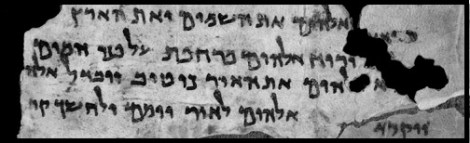 אלהים את השמים ואת הארץ
ורוח אלהים מרחפת על פני המים
להים את האור כי טוב ויבדל אלה
ויקרא אלהים לאור יומם ולחשך קר